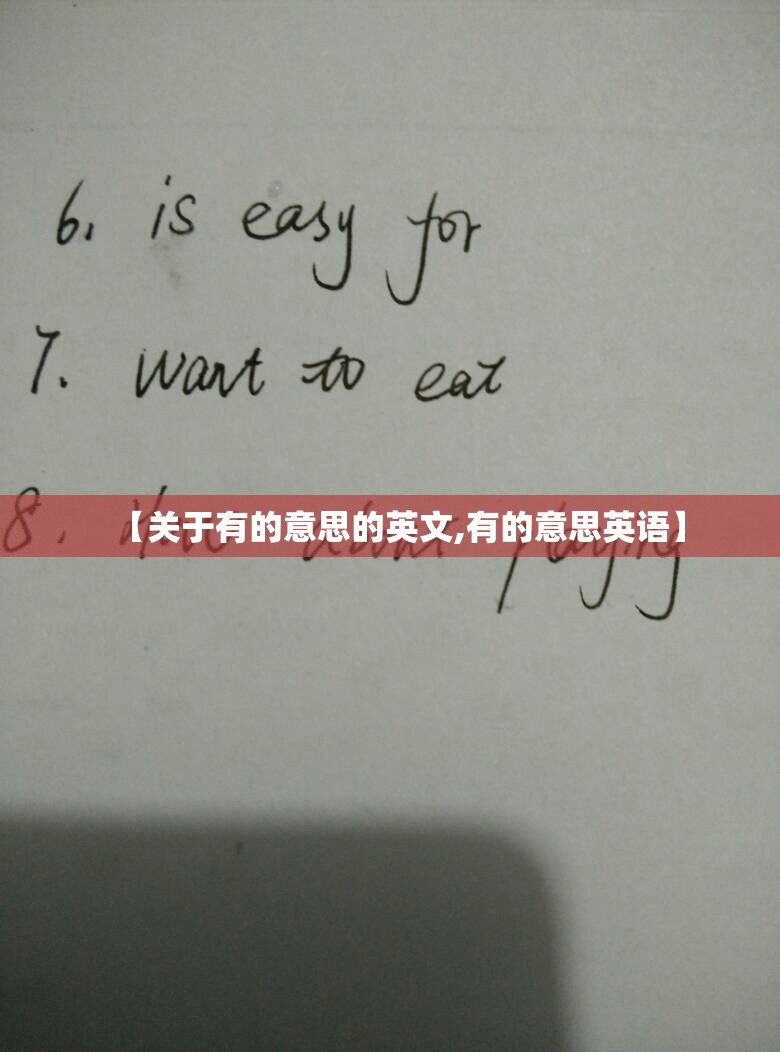 6. is easy for
7. want to eat
8. How about playing
【关于有的意思的英文,有的意思英语】